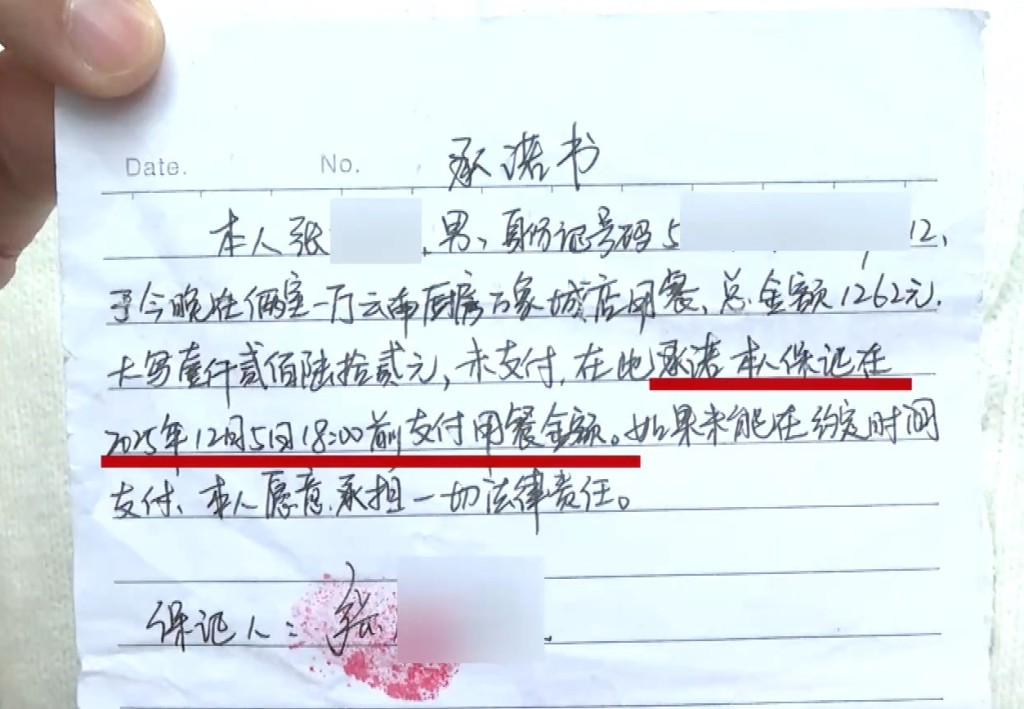 Date. No. 承诺书
本人张 ,男、身份证号码5 12、
于今晚在俩室一厅云南厨房万象城店用餐、总金额1262元.
大写壹仟贰佰陆拾贰元,未支付,在此承诺本人保证在
2025年12月5日18:00前支付用餐金额。如果未能在约定时间
支付、本人愿意承担一切法律责任。
保证人:张